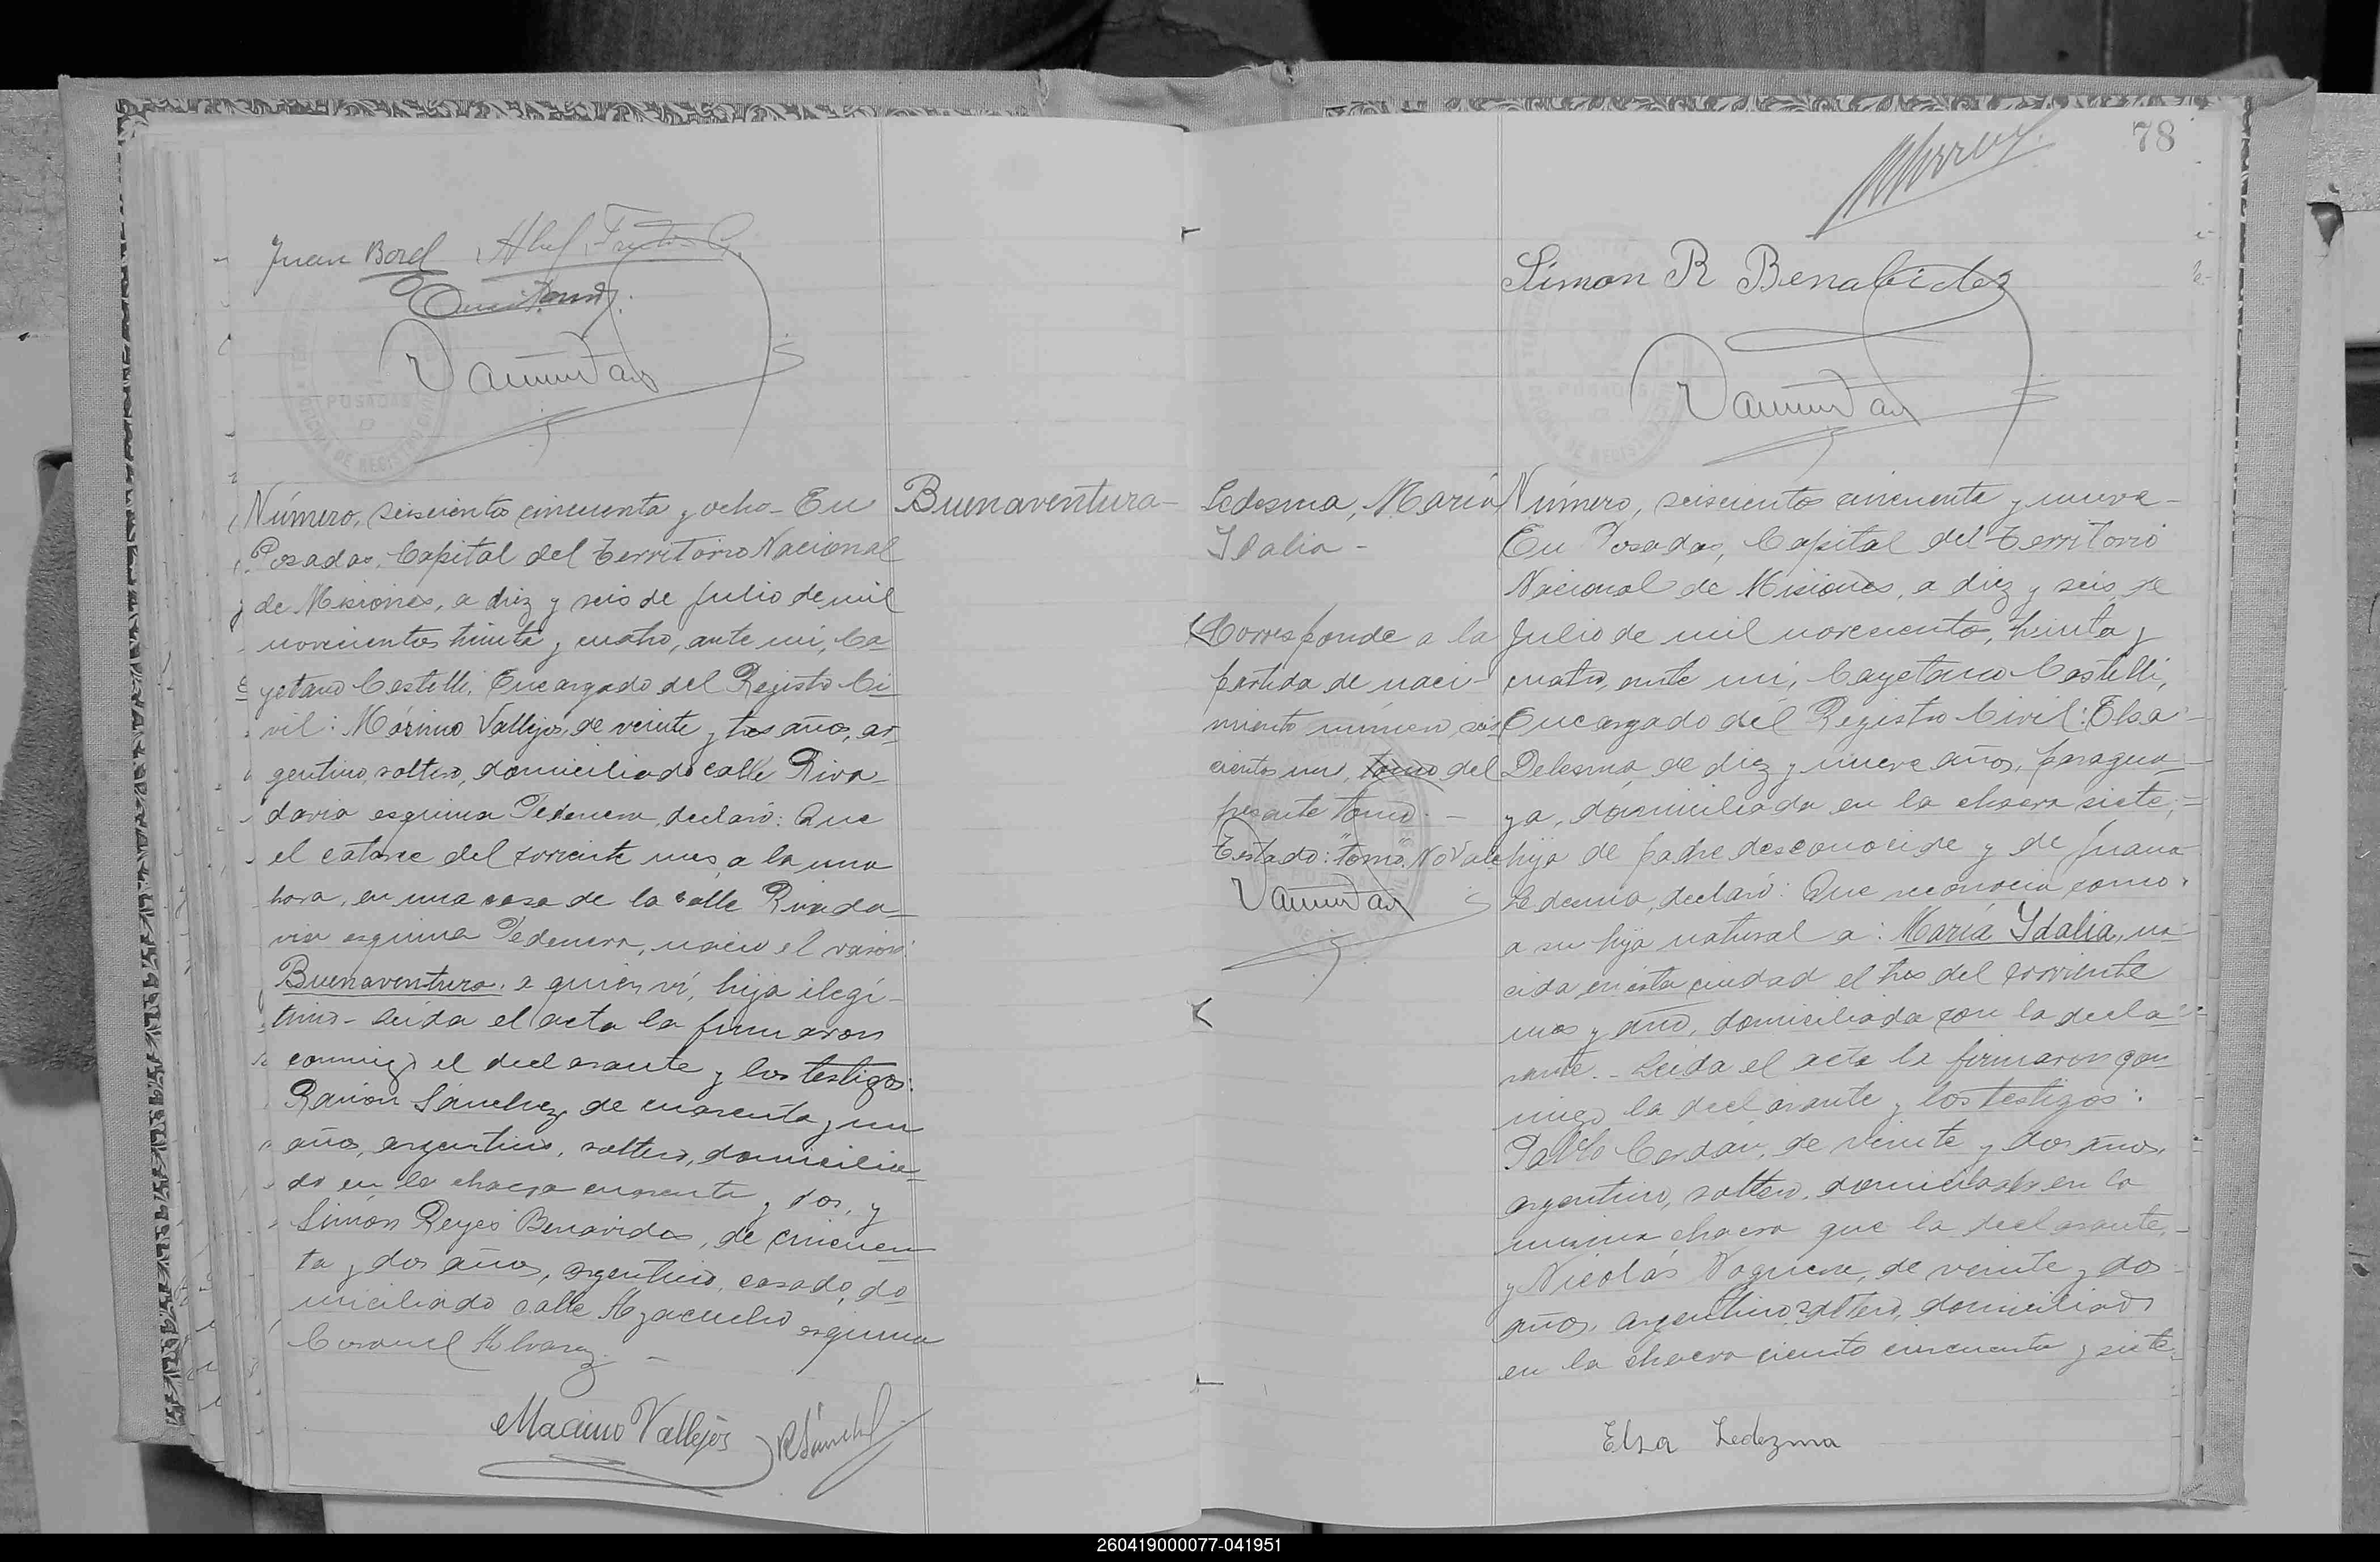 Juan Borel
POSADAS
Número, seiscientos cincuenta y ocho - En
Posadas, Capital del Territorio Nacional
de Misiones, a diez y seis de Julio de mil
novecientos treinta y cuatro, ante mi, Ca
yetano Castelli, Encargado del Registro Ci
vil: Máximo Vallejos, de veinte y tres años, ar
gentino, soltero, domiciliado calle Riva
davia esquina Pedenera, declaró: Que
el catorce del corriente mes, a la una
hora, en una casa de la calle Rivada
via esquina Pedenera, nació el varón:
Buenaventura, a quien ví, hijo ilegí-
timo - Leida el acta la firmaron
conmigo el declarante y los testigos:
Ramón Sánchez, de cuarenta y un
años, argentino, soltero, domicilia
do en la chacra cuarenta y dos, y
Simón Reyes Benavides, de cincuen
ta y dos años, argentino, casado, do
miciliado calle Ayacucho esquina
Coronel Alvarez. -
Macimo Vallejos RSánchez
Buenaventura -
78
Simon R Benabidez
POSADAS
Ledesma, María
Idalia -
Corresponde a la
partida de naci-
miento número seis
cientos un, tomo del
presente tomo. -
Testado: "tomo". No Vale
Número, seiscientos cincuenta y nueve -
En Posadas, Capital del Territorio
Nacional de Misiones, a diez y seis de
Julio de mil novecientos, treinta y
cuatro, ante mi, Cayetano Castelli,
Encargado del Registro Civil: Elsa
Delesma, de diez y nueve años, paragua-
ya, domiciliada en la chacra siete,
hija de padre desconocido y de Juana
Ledesma, declaró: Que reconocía como
a su hija natural a: María Ydalia, na
cida en esta ciudad el tres del corriente
mes y año, domiciliada con la decla
rante. - Leida el acta la firmaron con
migo la declarante y los testigos:
Pablo Cerdán, de veinte y dos años,
argentino, soltero, domiciliado en la
misma chacra que la declarante,
y Nicolás Noguera, de veinte y dos
años, argentino, soltero, domiciliado
en la chacra ciento cincuenta y siete
Elsa Ledezma
260419000077-041951